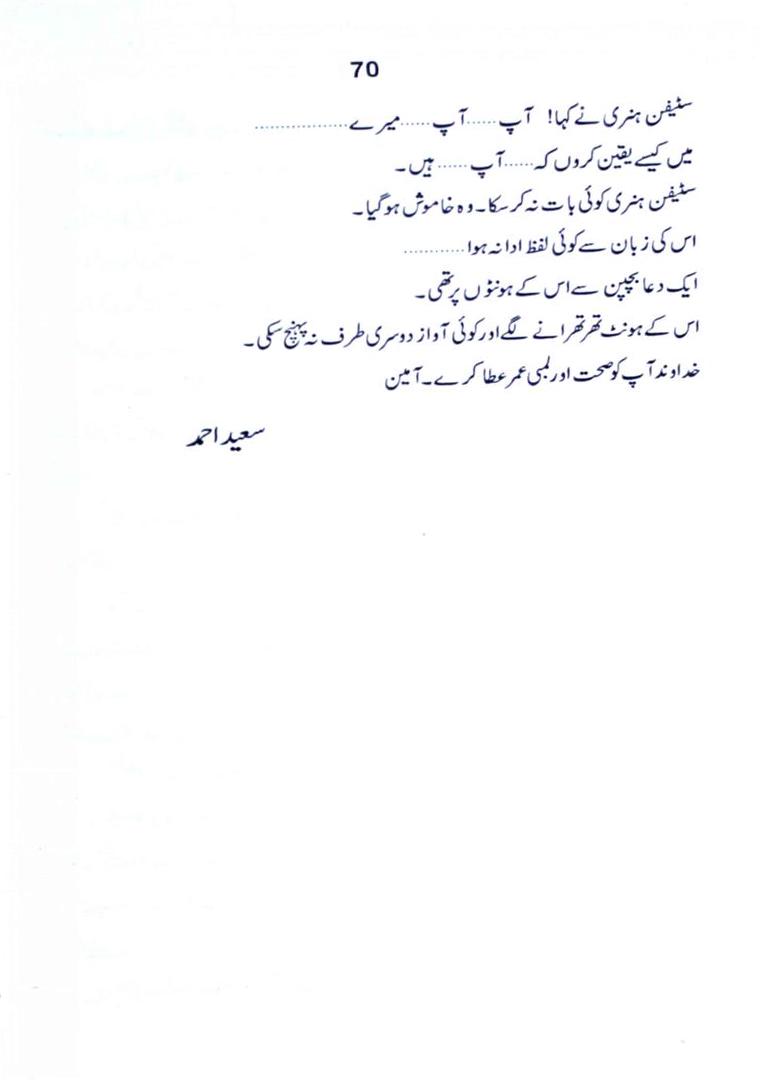 70
سٹیفن ہنری نے کہا! آپ......آپ......میرے..................
میں کیسے یقین کروں کہ......آپ......ہیں۔
سٹیفن ہنری کوئی بات نہ کر سکا۔ وہ خاموش ہو گیا۔
اس کی زبان سے کوئی لفظ ادا نہ ہوا............
ایک دعا بچپن سے اس کے ہونٹوں پر تھی۔
اس کے ہونٹ تھرتھرانے لگے اور کوئی آواز دوسری طرف نہ پہنچ سکی۔
خداوند آپ کو صحت اور لمبی عمر عطا کرے۔ آمین
سعید احمد